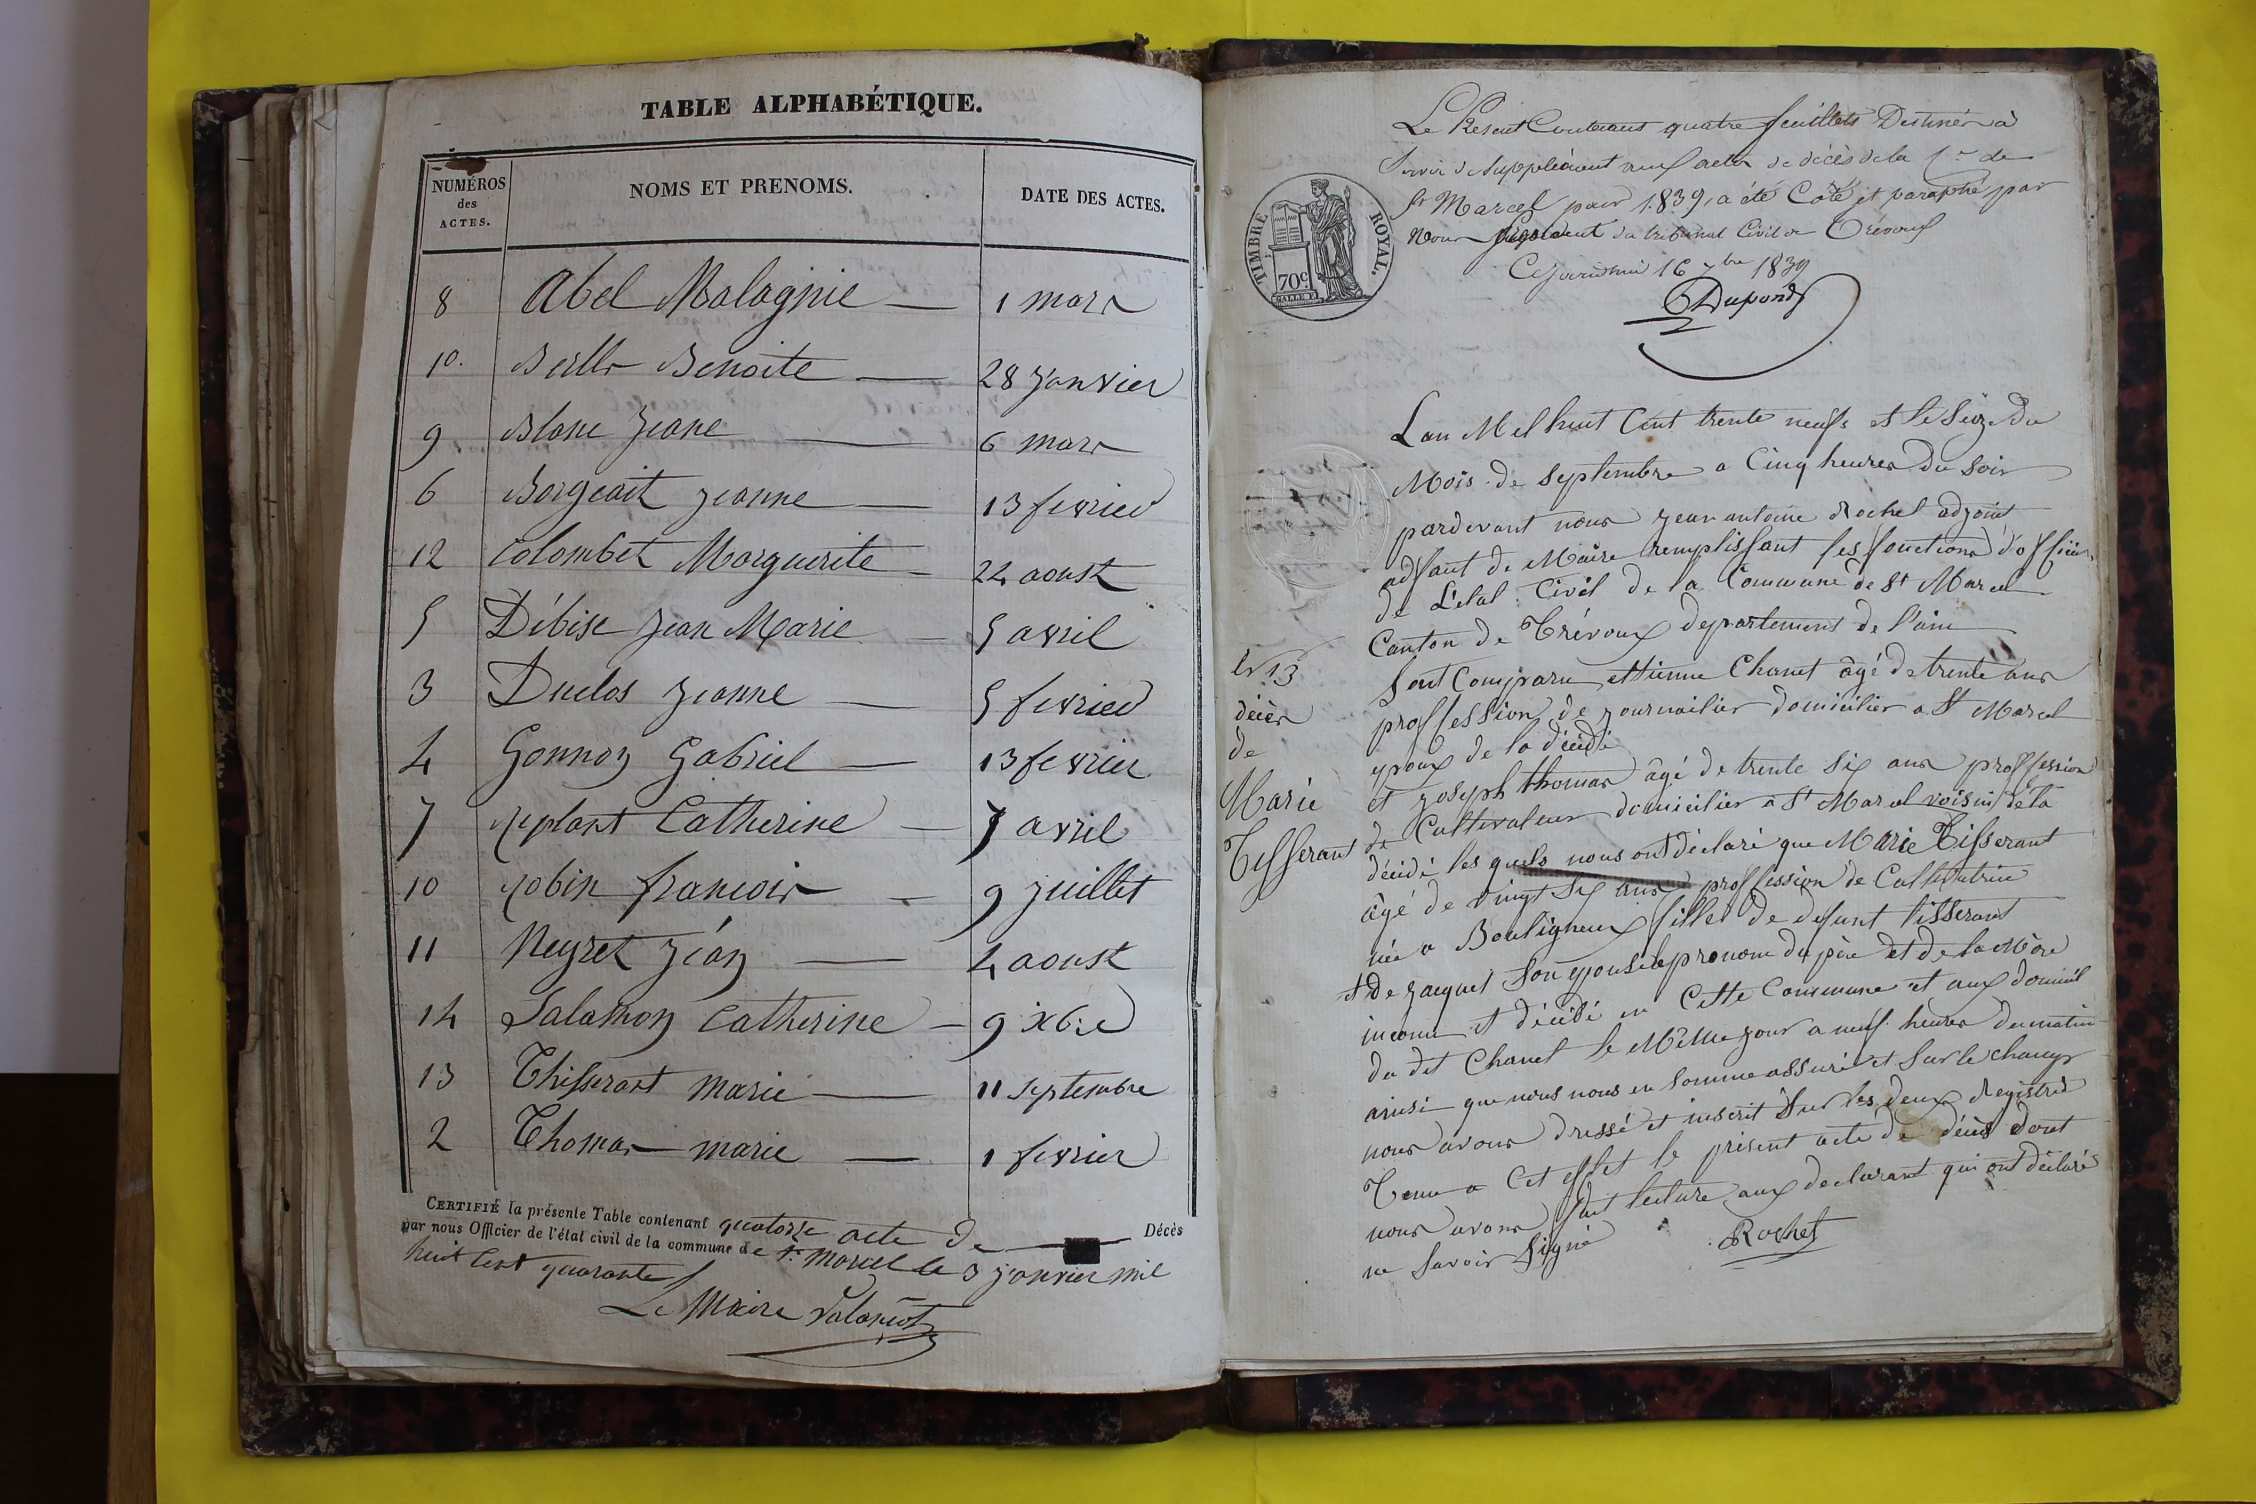 TABLE ALPHABÉTIQUE.
NUMÉROS des ACTES. NOMS ET PRENOMS. DATE DES ACTES.
8 Abel Malagnie 1 mars
10. Benoite 28 janvier
9 Blanc jeane 6 mars
6 Borgeait jeanne 13 fevrier
12 Colombet Marguerite 22 aoust
5 Débise jean Marie 5 avril
3 Duclos jeanne 5 fevrier
4 Gonnon Gabriel 13 fevrier
7 Catherine 7 avril
10 robin francois 9 juillet
11 Neyret jéan 4 aoust
14 Salamon Catherine 9 xbre
13 Thisserant marie 11 septembre
2 Thomas marie 1 fevrier
CERTIFIÉ la présente Table contenant quatorze acte de Décès
par nous Officier de l'état civil de la commune de St Marcel le 3 janvier mil
huit cent quarante
Le Maire
TIMBRE ROYAL.
70c
Le Présent Contenant quatre feuillets Destinés à
Servir de Supplément aux actes de décès de la Cne de
St Marcel pour 1839, a été Coté et paraphé par
Nous président du tribunal Civil de Trévoux
Cejourdhui 16 7bre 1839
Dupond
Lan Mil huit Cent trente neuf et le Seize du
Mois de Septembre a Cinq heures du Soir
pardevant nous jean antoine Rochet adjoint
de Maire remplissant les fonctions d'officier
de L'état Civil de la Commune de St Marcel
Canton de Trévoux departement de l'ain
Sont Comparu ettienne Chanet âgé de trente ans
proffession de journailier domicilier a St Marcel
epoux de la décédé
et joseph thomas âgé de trente Six ans proffession
de Cultivateur domicilier a St Marcel voisin de la
décédé les quels nous ont déclaré que Marie Tisserant
âgé de vingt Six ans proffession de Cultivatrice
née a Bouligneux fille de defunt tisserant
et de jacquet Son epouse pronom du père et de la Mère
inconu et décédé en Cette Commune et aux domicil
du dit Chanet le Même jour a neuf heures du matin
ainsi que nous nous en Somme assuré et Sur le champ
nous avons drussé et inscrit Sur les deux Registres
Tenu a Cet effet le présent acte de décès dont
nous avons fait lecture aux declarant qui ont déclaré
ne Savoir Signé
Rochet
N 13
décès
de
Marie
Tisserant